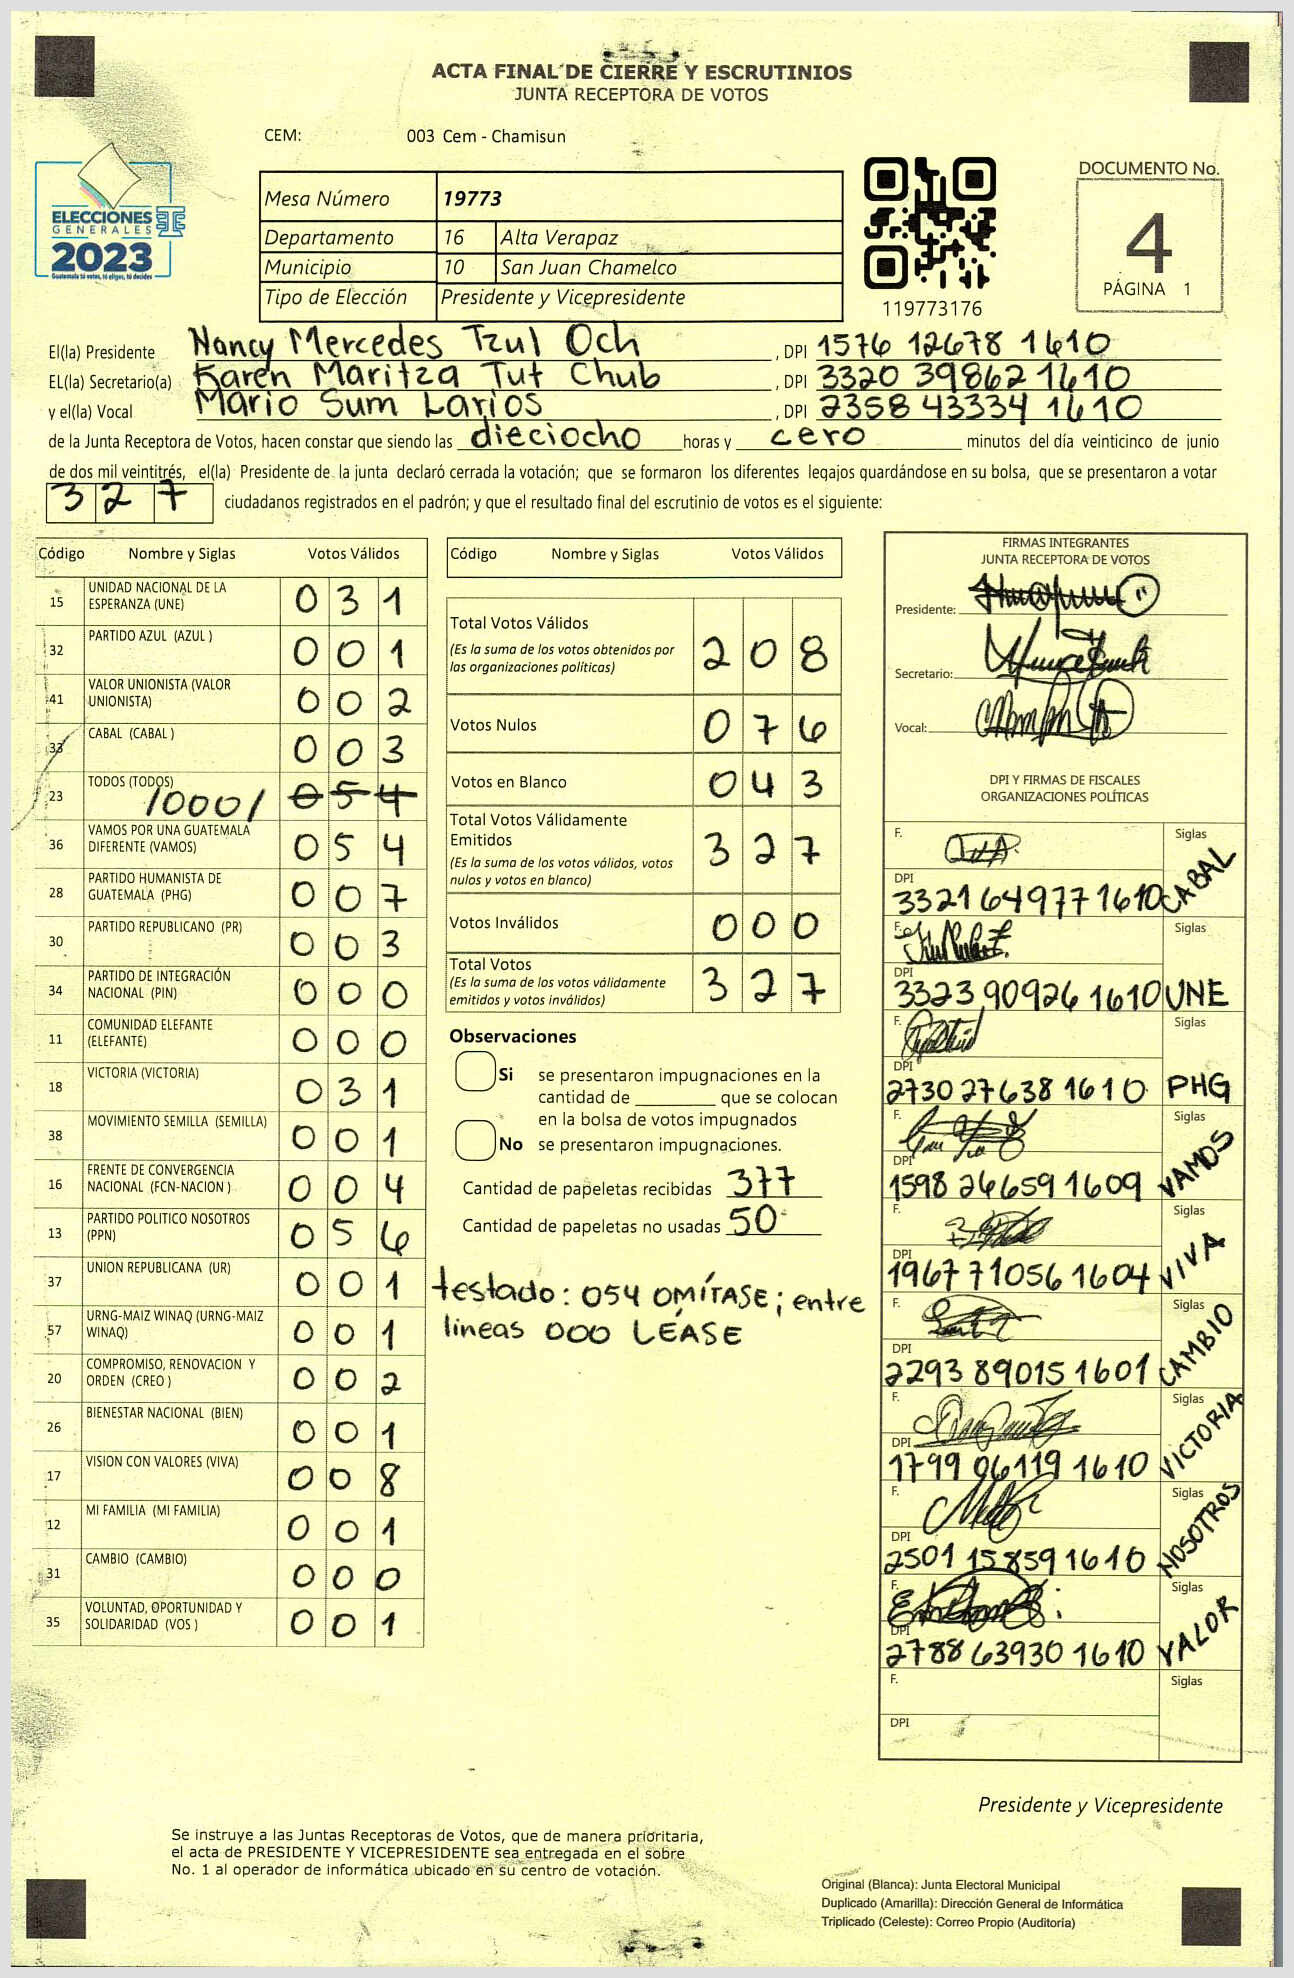 ACTA FINAL DE CIERRE Y ESCRUTINIOS
JUNTA RECEPTORA DE VOTOS
CEM: 003 Cem - Chamisun
ELECCIONES
GENERALES
2023
Guatemala tú votas, tú eliges, tú decides
Mesa Número 19773
Departamento 16 Alta Verapaz
Municipio 10 San Juan Chamelco
Tipo de Elección Presidente y Vicepresidente
119773176
DOCUMENTO No.
4
PÁGINA 1
El(la) Presidente Nancy Mercedes Tzul Och, DPI 1576 12678 1610
EL(la) Secretario(a) Karen Maritza Tut Chub, DPI 3320 39862 1610
y el(la) Vocal Mario Sum Larios, DPI 2358 43334 1610
de la Junta Receptora de Votos, hacen constar que siendo las dieciocho horas y cero minutos del día veinticinco de junio
de dos mil veintitrés, el(la) Presidente de la junta declaró cerrada la votación; que se formaron los diferentes legajos guardándose en su bolsa, que se presentaron a votar
327 ciudadanos registrados en el padrón; y que el resultado final del escrutinio de votos es el siguiente:
Código Nombre y Siglas Votos Válidos
15 UNIDAD NACIONAL DE LA ESPERANZA (UNE) 031
32 PARTIDO AZUL (AZUL ) 001
41 VALOR UNIONISTA (VALOR UNIONISTA) 002
33 CABAL (CABAL ) 003
23 TODOS (TODOS) /000/ 054
36 VAMOS POR UNA GUATEMALA DIFERENTE (VAMOS) 054
28 PARTIDO HUMANISTA DE GUATEMALA (PHG) 007
30 PARTIDO REPUBLICANO (PR) 003
34 PARTIDO DE INTEGRACIÓN NACIONAL (PIN) 000
11 COMUNIDAD ELEFANTE (ELEFANTE) 000
18 VICTORIA (VICTORIA) 031
38 MOVIMIENTO SEMILLA (SEMILLA) 001
16 FRENTE DE CONVERGENCIA NACIONAL (FCN-NACION ) 004
13 PARTIDO POLITICO NOSOTROS (PPN) 056
37 UNION REPUBLICANA (UR) 001
57 URNG-MAIZ WINAQ (URNG-MAIZ WINAQ) 001
20 COMPROMISO, RENOVACION Y ORDEN (CREO ) 002
26 BIENESTAR NACIONAL (BIEN) 001
17 VISION CON VALORES (VIVA) 008
12 MI FAMILIA (MI FAMILIA) 001
31 CAMBIO (CAMBIO) 000
35 VOLUNTAD, OPORTUNIDAD Y SOLIDARIDAD (VOS ) 001
Código Nombre y Siglas Votos Válidos
Total Votos Válidos 208
(Es la suma de los votos obtenidos por
las organizaciones políticas)
Votos Nulos 076
Votos en Blanco 043
Total Votos Válidamente
Emitidos 327
(Es la suma de los votos válidos, votos
nulos y votos en blanco)
Votos Inválidos 000
Total Votos 327
(Es la suma de los votos válidamente
emitidos y votos inválidos)
Observaciones
Si se presentaron impugnaciones en la
cantidad de ________ que se colocan
en la bolsa de votos impugnados
No se presentaron impugnaciones.
Cantidad de papeletas recibidas 377
Cantidad de papeletas no usadas 50
testado: 054 OMÍTASE; entre
lineas 000 LÉASE
FIRMAS INTEGRANTES
JUNTA RECEPTORA DE VOTOS
Presidente:
Secretario:
Vocal:
DPI Y FIRMAS DE FISCALES
ORGANIZACIONES POLÍTICAS
F. Siglas
DPI 3321 64977 1610 CABAL
F. Siglas
DPI 3323 90926 1610 UNE
F. Siglas
DPI 2730 27638 1610 PHG
F. Siglas
DPI 1598 26659 1609 VAMOS
F. Siglas
DPI 1967 71056 1604 VIVA
F. Siglas
DPI 2293 89015 1601 CAMBIO
F. Siglas
DPI 1799 06119 1610 VICTORIA
F. Siglas
DPI 2501 15859 1610 NOSOTROS
F. Siglas
DPI 2788 63930 1610 VALOR
F. Siglas
DPI
Presidente y Vicepresidente
Se instruye a las Juntas Receptoras de Votos, que de manera prioritaria,
el acta de PRESIDENTE Y VICEPRESIDENTE sea entregada en el sobre
No. 1 al operador de informática ubicado en su centro de votación.
Original (Blanca): Junta Electoral Municipal
Duplicado (Amarilla): Dirección General de Informática
Triplicado (Celeste): Correo Propio (Auditoria)